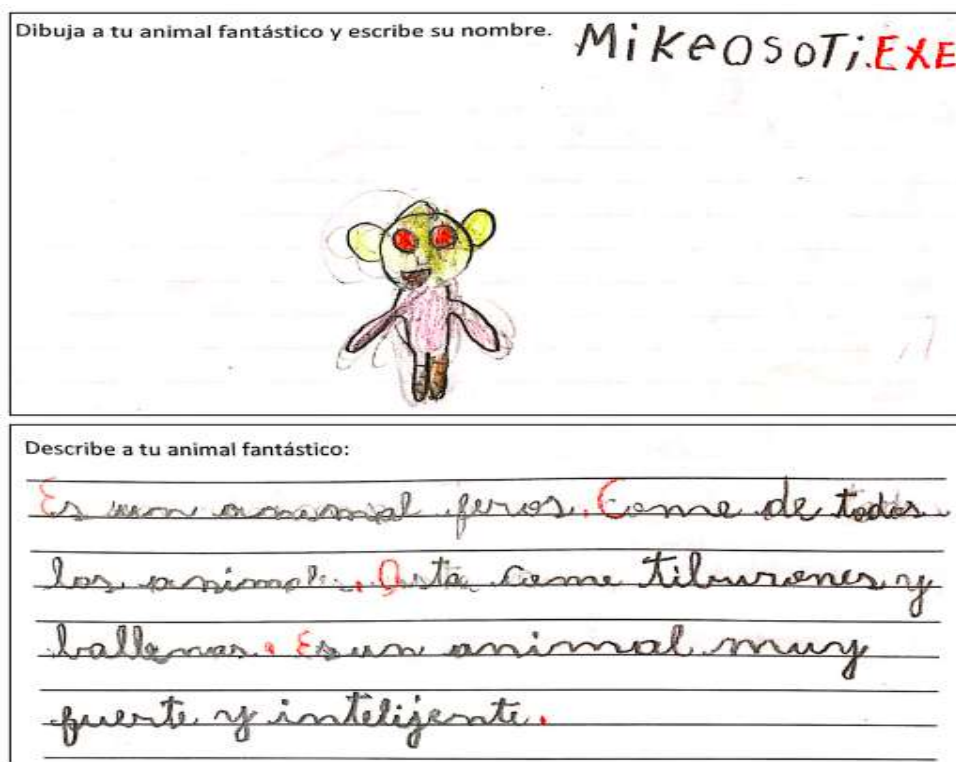 Dibuja a tu animal fantástico y escribe su nombre.
MiKeOSoTi.EXE
Describe a tu animal fantástico:
Es un anemal feros. Come de todos
los animal. Asta come tiburones y
ballenas. Es un animal muy
fuerte y intelijente.